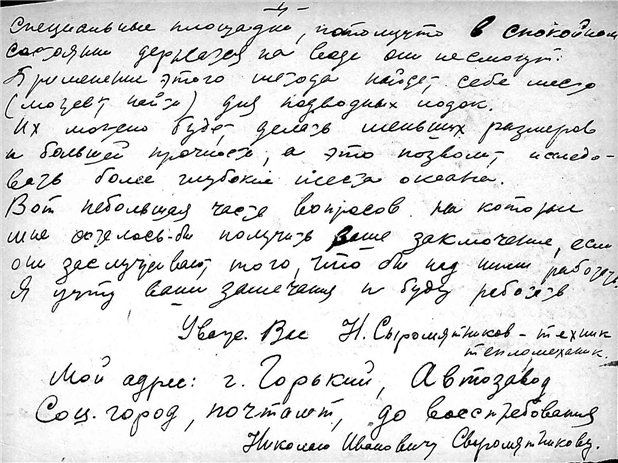 -4-
специальные площадки, потомучто в спокойном
состоянии держатся на воде они несмогут.
Применение этого метода найдет себе место
(может найти) для подводных лодок.
Их можно будет делать меньших размеров
и большей прочности, а это позволит исследо-
вать более глубокие места океана.
Вот небольшая часть вопросов на которые
мне хотелось-бы получить ваше заключение, если
они заслуживают того, что бы над ними работать.
Я учту ваши замечания и буду работать
Уваж. Вас Н. Сыромятников - техник
тепломеханик.
Мой адрес: г. Горький, Автозавод
Соц. город, почтамт, до восстребования
Николаю Ивановичу Сыромятникову.